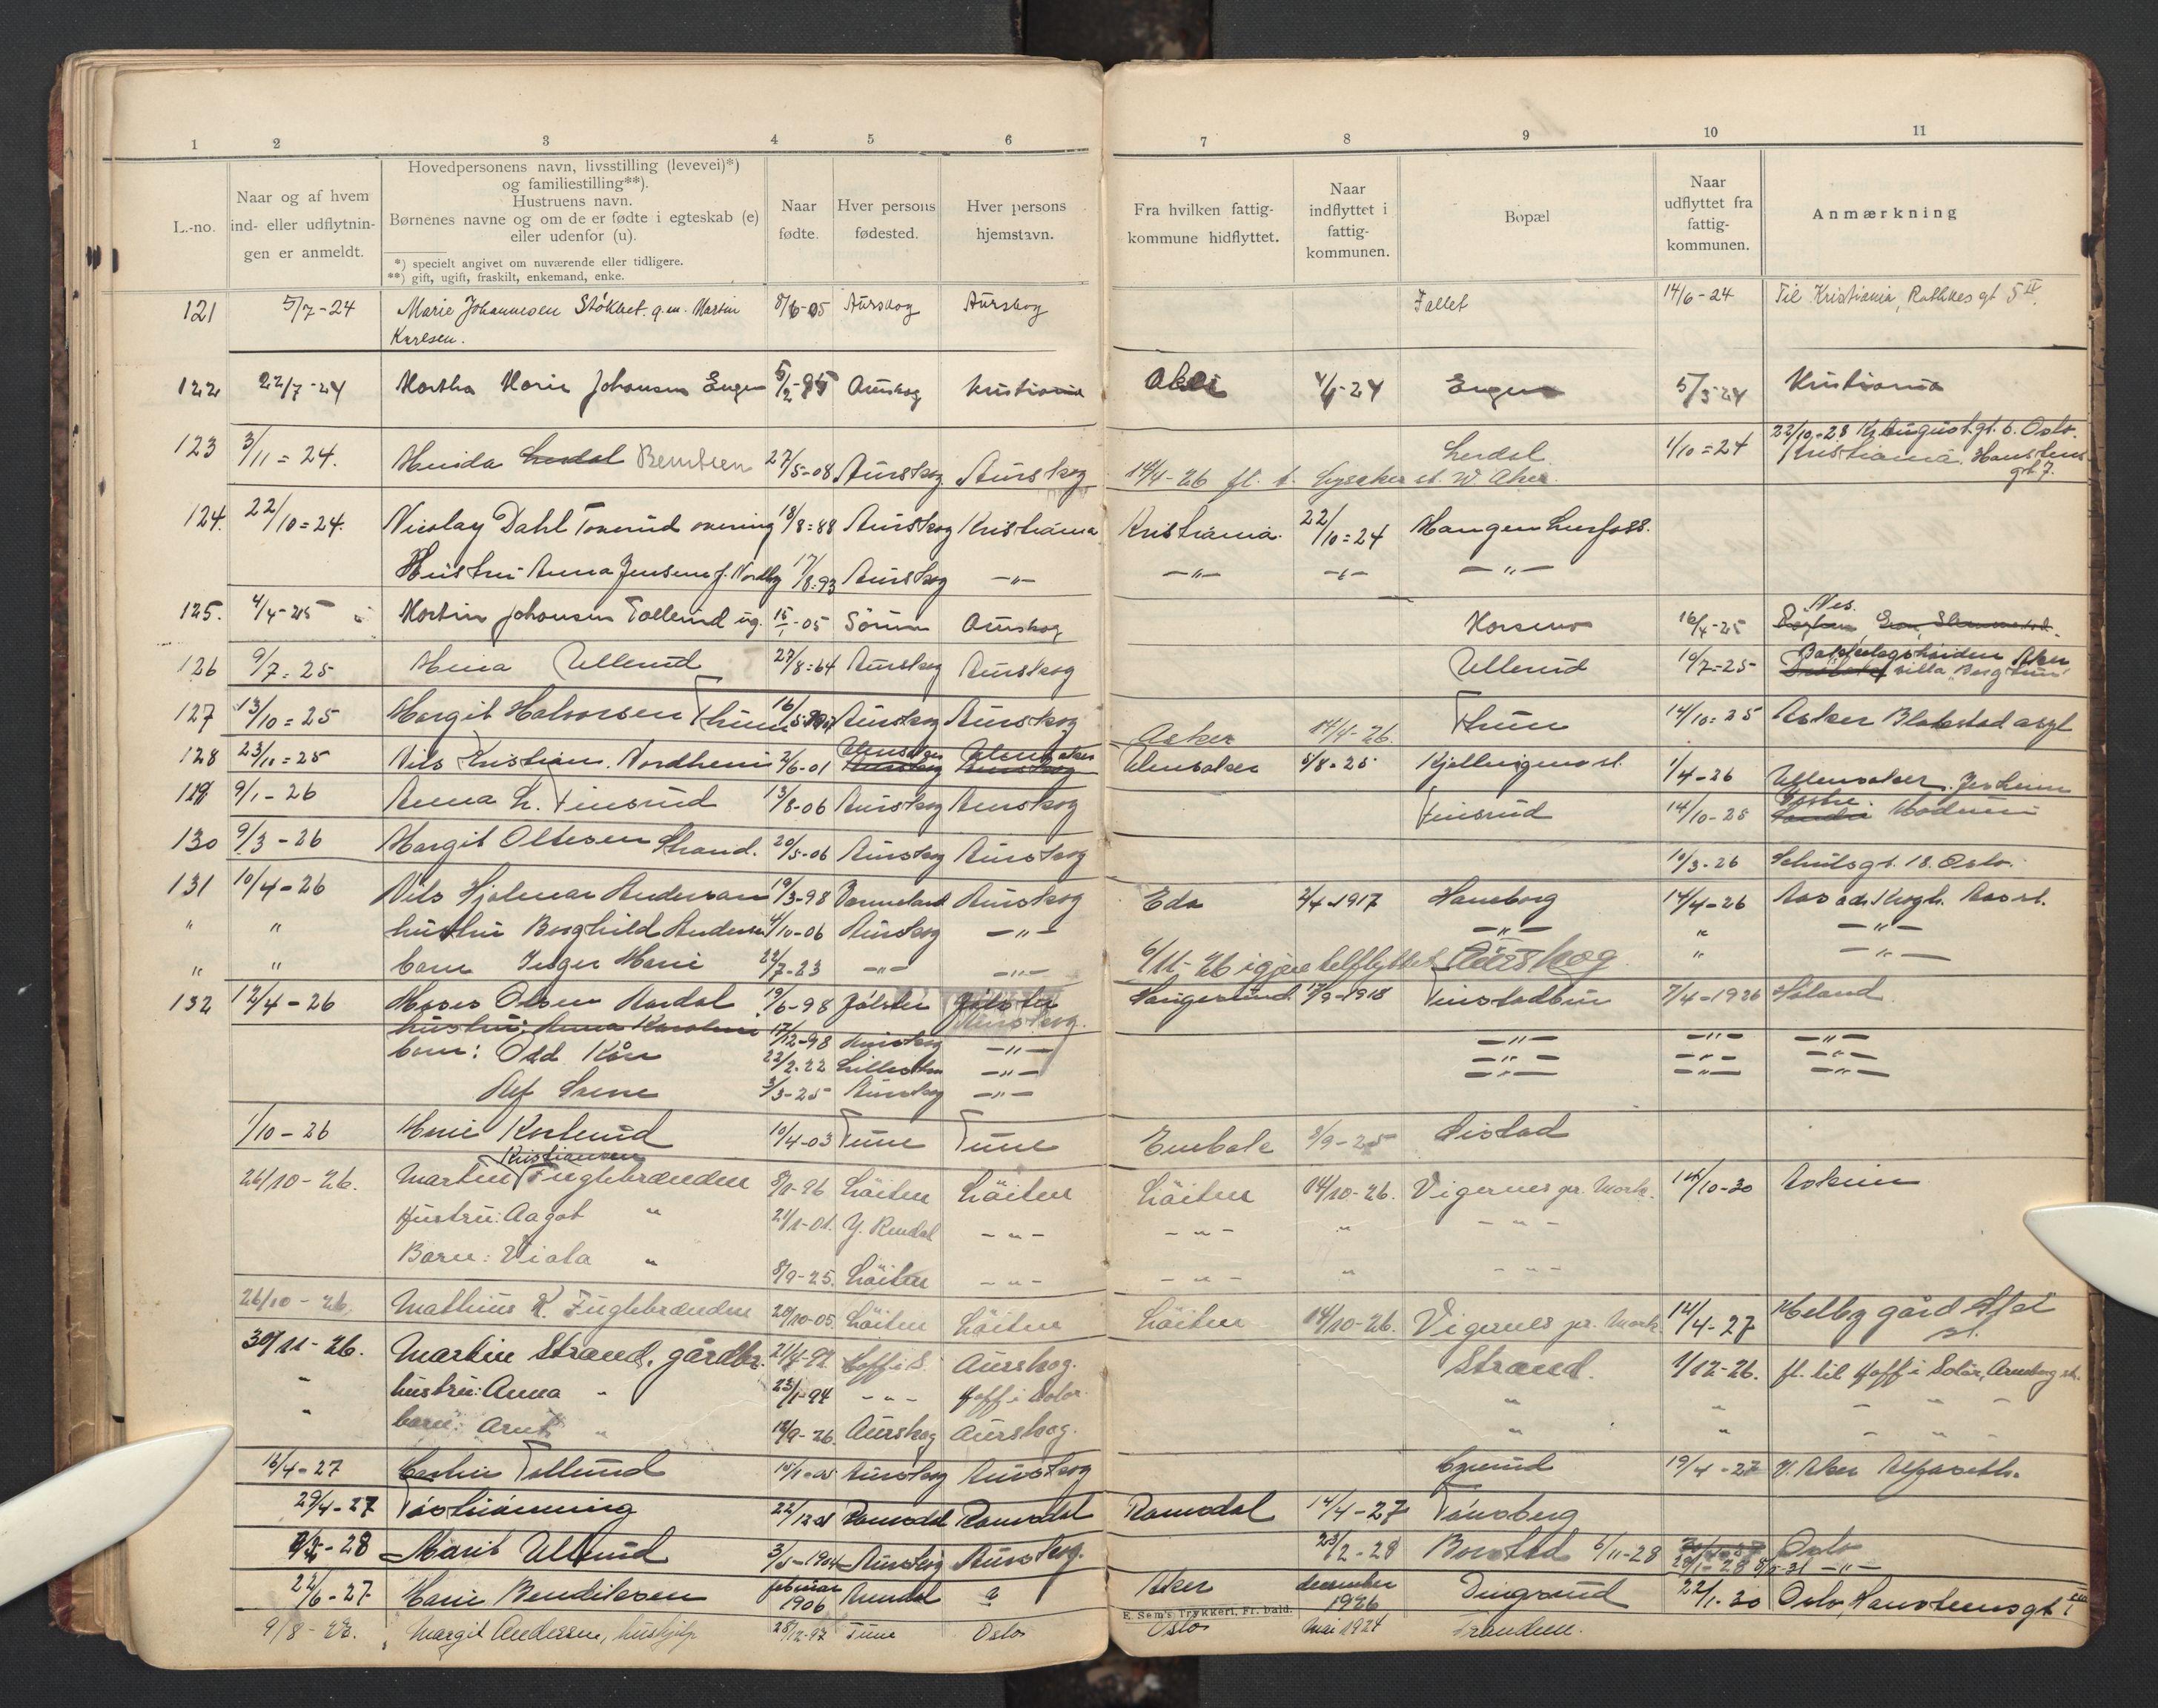 1 2 3 4 5 6 7 8 9 10 11
L.-no.
Naar og af hvem
ind- eller udflytnin-
gen er anmeldt.
Hovedpersonens navn, livsstilling (levevei)*)
og familiestilling**).
Hustruens navn.
Børnenes navne og om de er fødte i egteskab (e)
eller udenfor (u).
*) specielt angivet om nuværende eller tidligere.
**) gift, ugift, fraskilt, enkemand, enke.
Naar
fødte.
Hver persons
fødested.
Hver persons
hjemstavn.
Fra hvilken fattig-
kommune hidflyttet.
Naar
indflyttet i
fattig-
kommunen.
Bopæl
Naar
udflyttet fra
fattig-
kommunen.
Anmærkning
121 5/7-24 Marie Johannesen Stökket. g.m. Martin 8/6-05 Aurskog Aurskog Fallet 14/6-24 Til Kristiania, Rathkes gt 5 IV.
Karlsen.
122 22/7-24 Martha Marie Johansen Engen 5/2-85 Aurskog Kristiania Engen 5/5-24 Kristiania
22/10-28 Kr. Augustgt. 6. Oslo.
123 3/11=24. Lerdal Berntsen 27/5-08 Aurskog Aurskog Lerdal 1/10=24 Kristiania. Haustens
gt. 7.
14/4-26 fl. t. Lysaker st. V. Aker.
124. 22/10=24. Nicolay Dahl Toverud 18/8=88 Aurskog Kristiania Kristiania. 22/10=24 Mangen Lerfoss.
Hustru Anna Jensen f. Nordby 17/8=93 Aurskog -"- -"- -"- -"-
125. 4/4-25 Martin Johansen Tollerud ug. 15/1-05 Sörum Aurskog 16/4-25 Nes.
126 9/7=25 Ullerud 27/8=64 Aurskog Aurskog Ullerud 10/7=25 Bækkelagshöiden Aker
villa "Bergtun"
127 13/10=25 Margit Halvorsen Thuen Aurskog Aurskog Asker 14/4-26. Thuen 14/10=25 Asker Blakstad asyl
128 23/11=25 Nils Kristian Nordheim 2/6-01 Ulensaker Ulensaker Ulensaker Kjellingmo st. 1/4-26 Ullensaker. Jesheim
129 9/1-26 Anna L. Finsrud 13/8-06 Aurskog Aurskog Finsrud 14/10-25 Modum
130 9/3-26 Margit Oltesen Strand. 20/5-06 Aurskog Aurskog 10/3-26 Schulsgt. 18. Oslo.
131 10/4-26 Nils Hjalmar Anderson 19/3-98 Värmeland Aurskog Eda 2/4-1917 Haneborg 14/4-26
" " hustru Borghild Andersen 4/10-06 Aurskog -"- -"- " -"-
" " barn Inger Marie 22/7-23 -"- -"- 6/11-26 igjen tilflyttet Aurskog " -"-
132 12/4-26 Moses Olsen Aardal 19/6-98 Jölster Jölster Haugesund 17/9-1918 Finstadbru 7/4-1926 Höland
Aurskog.
hustru: Anna Karoline 17/12-98 Aurskog -"- -"- -"- -"-
barn: Odd Kåre 22/2-22 Lilleström -"- -"- -"- -"-
Alf Srene 3/3-25 Aurskog -"- -"- -"- -"-
1/10-26 Marie Korterud 10/4-03 Tune Tune Enebak 8/9-25 Listad
Kristiansen
26/10-26. Martin Fuglebrænden 8/1-96 Löiten Löiten Löiten 14/10-26. Vigernes pr. Mork. 14/10-30 Askim
Hustru: Aagot " 21/1-01. Y. Rendal -"- -"- " -"-
Barn: Viola " 8/9-25. Löiten -"- -"- " -"-
26/10-26. Mathius K. Fuglebrænden 20/10-05. Löiten Löiten Löiten 14/10-26. Vigernes pr. Mork. 12/4-27 Melby gård
30/11-26. Martin Strand, gårdbr. Hoff i S. Aurskog. Strand. 1/12-26. fl. til Hoff i Solör, Arneberg st.
" hustru: Anna " 23/1-94 -"- Hoff i Solör " " - " -
" barn: Arnt " 12/9-26. Aurskog Aurskog. " " - " -
16/4-27 Tollerud 15/1-05 Aurskog Aurskog 19/4-27 V. Aker
29/4-27 Romsdal Romsdal Romsdal 14/4-27 Tönsberg
Marit Ullerud 3/5-1904 Aurskog Aurskog. 23/2-28 Borstad 6/11-28 Oslo
22/6-27. Marie Bendiksen februar Arendal ? Aker december Dingsrud 22/1-30 Oslo,
1906 1926
9/8-27. Margit Andersen, hushjelp 28/12-97 Tune Oslo Oslo Mai 1924 Tranden.
E. Sem's Trykkeri, Fr.hald.